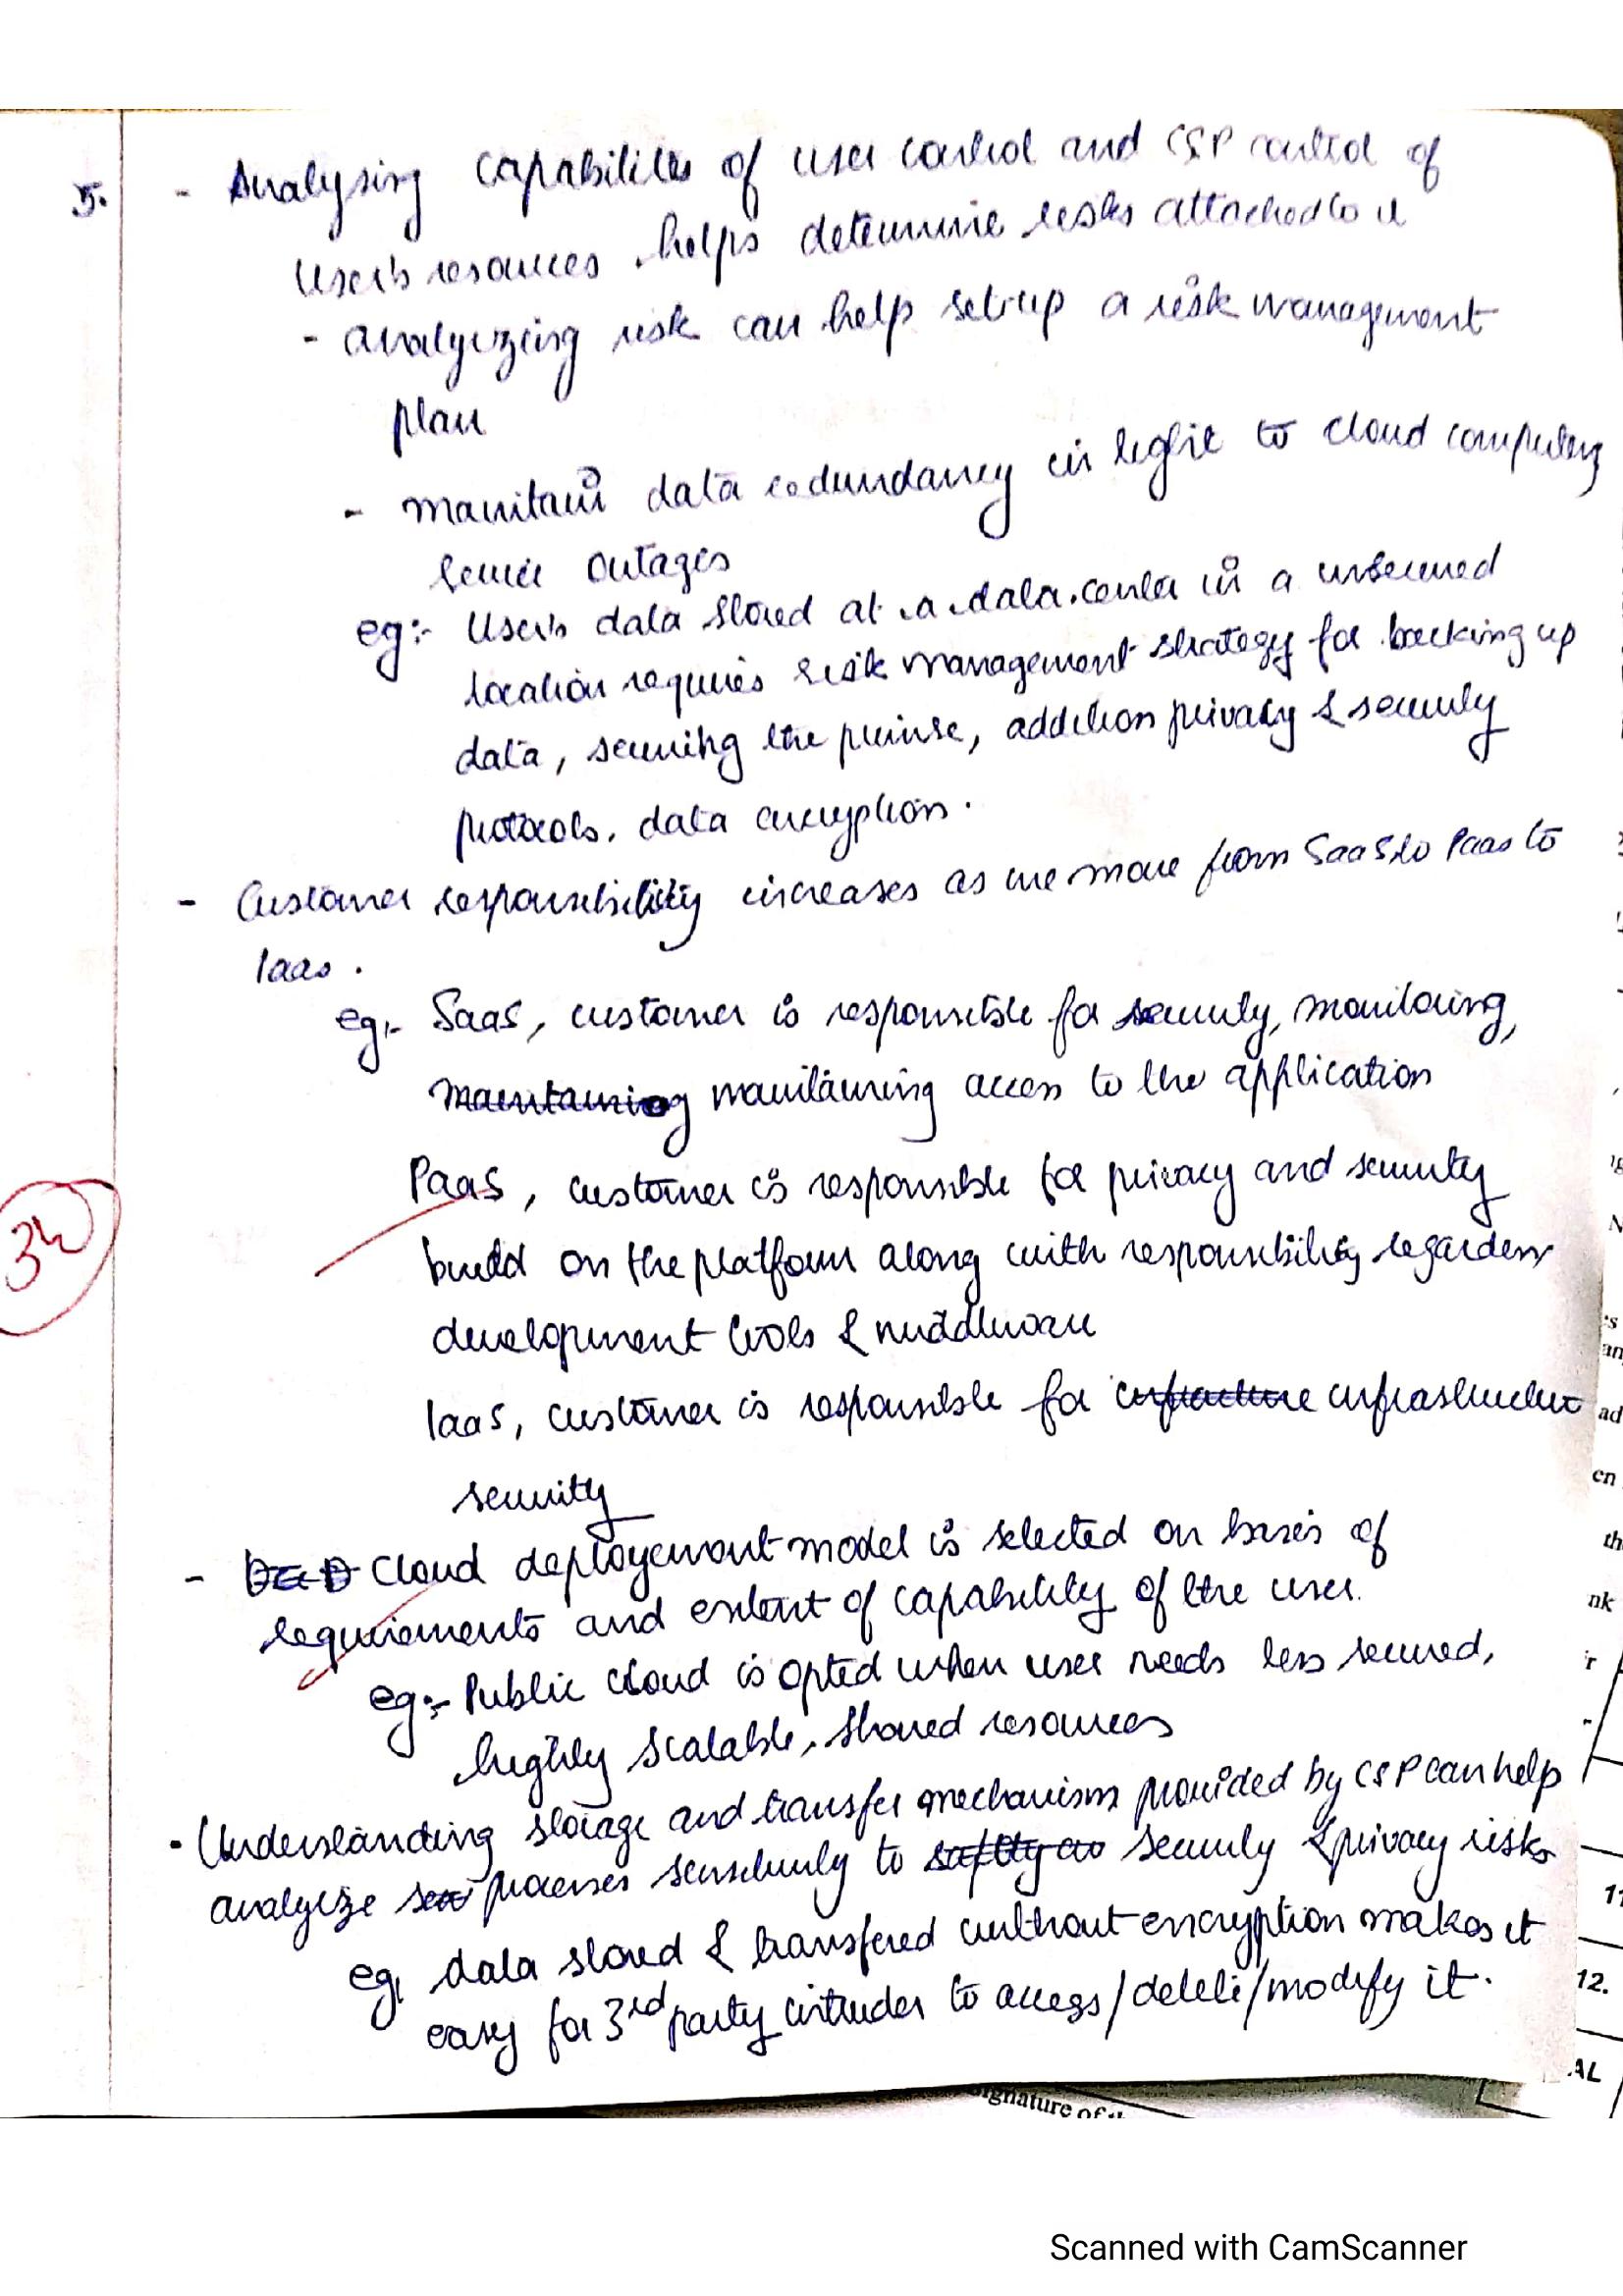 5. - Analysing capabilities of user control and CSP control of
User's resources helps determine risks attached to it
- analyizing risk can help setup a risk management
plan
- maintain data redundancy in light to cloud computing
service outages
eg:- User's data stored at a data center in a unsecured
location requires risk management strategy for backing up
data, securing the primise, addition privacy & security
protocols, data encryption.
- Customer responsibility increases as we move from SaaS to PaaS to
IaaS.
eg:- SaaS, customer is responsible for security, monitoring,
maintaining maintaining access to the application
PaaS, customer is responsible for privacy and security
build on the platform along with responsibility regarding
development tools & middleware
IaaS, customer is responsible for infrastructure
security
- Cloud deployement model is selected on basis of
requirements and extent of capability of the user.
eg:- Public cloud is opted when user needs less secured,
highly scalable, shared resources
- Understanding storage and transfer mechanism provided by CSP can help
analyize processes sensitivity to security & privacy risks
eg, data stored & transfered without encryption makes it
easy for 3rd party intruder to access/delete/modify it.
12.
AL
Scanned with CamScanner